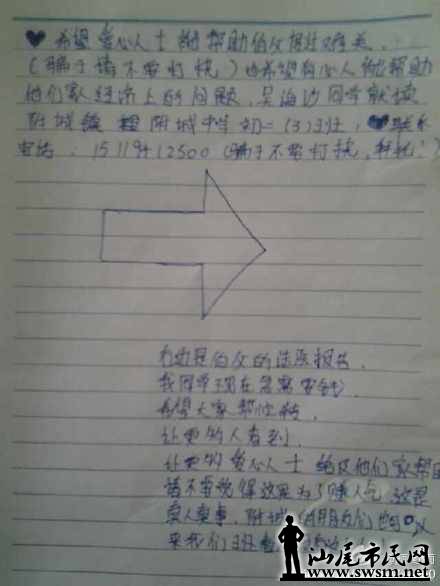 ♥希望爱心人士能帮助伯父度过难关.
(骗子请不要打扰)也希望有心人能帮助
他们家经济上的问题,吴海边同学就读
附城镇 附城中学初二(3)班,联系
电话:15119412500(骗子不要打扰,拜托!)
右边是伯父的 报告.
我同学现在急需要钱,
希望大家帮忙转,
让更多的人看到.
让更多的爱心人士给他们家帮
请不要觉得这是为了赚人气,这是
真人真事,附城的朋友们也可以
来我们班看
汕尾市民网
www.swsm.net